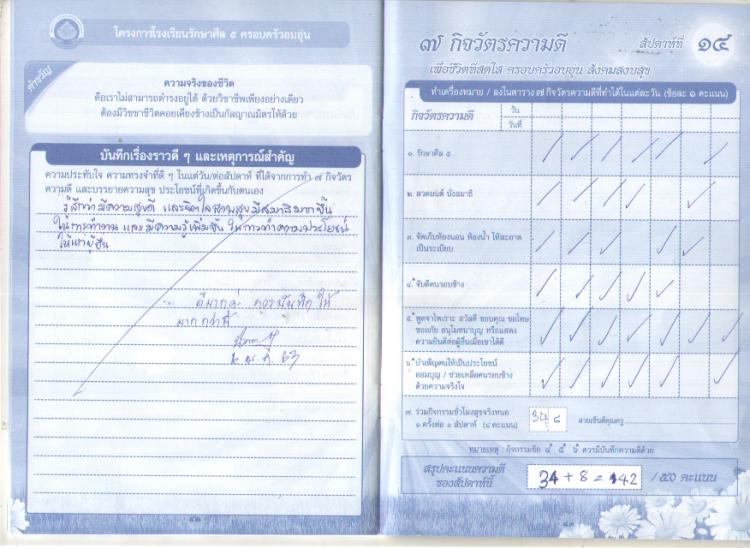 โครงการโรงเรียนรักษาศีล ๕ ครอบครัวอบอุ่น
คำขวัญ
ความจริงของชีวิต
คือเราไม่สามารถดำรงอยู่ได้ ด้วยวิชาชีพเพียงอย่างเดียว
ต้องมีวิชชาชีวิตคอยเคียงข้างเป็นกัลยาณมิตรให้ด้วย
บันทึกเรื่องราวดี ๆ และเหตุการณ์สำคัญ
ความประทับใจ ความทรงจำที่ดี ๆ ในแต่วัน/ต่อสัปดาห์ ที่ได้จากการทำ ๗ กิจวัตร
ความดี และบรรยายความสุข ประโยชน์ที่เกิดขึ้นกับตนเอง
รู้สึกว่ามีความสุขดี และจิตใจสงบสุขมีสมาธิมากขึ้น
ในการทำงาน และมีความรู้เพิ่มขึ้น ในการทำความประโยชน์
ให้แก่ผู้อื่น
ดีมากค่ะ ควรบันทึกให้
มากกว่านี้
63
๔๒
๗ กิจวัตรความดี
สัปดาห์ที่ ๑๔
เพื่อชีวิตที่สดใส ครอบครัวอบอุ่น สังคมสงบสุข
ทำเครื่องหมาย / ลงในตาราง ๗ กิจวัตรความดีที่ทำได้ในแต่ละวัน (ข้อละ ๑ คะแนน)
กิจวัตรความดี
วัน
วันที่
๑. รักษาศีล ๕
๒. สวดมนต์ นั่งสมาธิ
๓. จัดเก็บห้องนอน ห้องน้ำ ให้สะอาด
เป็นระเบียบ
๔. จับดีคนรอบข้าง
๕. พูดจาไพเราะ สวัสดี ขอบคุณ ขอโทษ
ขออภัย อนุโมทนาบุญ หรือแสดง
ความยินดีต่อผู้อื่นเมื่อเขาได้ดี
๖. บำเพ็ญตนให้เป็นประโยชน์
ออมบุญ / ช่วยเหลือคนรอบข้าง
ด้วยความจริงใจ
๗. ร่วมกิจกรรมชั่วโมงสุขจริงหนอ
๑ ครั้งต่อ ๑ สัปดาห์ (๘ คะแนน)
34 ๘
ลายเซ็นต์คุณครู
หมายเหตุ : กิจกรรมข้อ ๔ ๕ ๖ ควรมีบันทึกความดีด้วย
สรุปคะแนนความดี
ของสัปดาห์นี้
34 + 8 = 42
/ ๕๐ คะแนน
๔๓